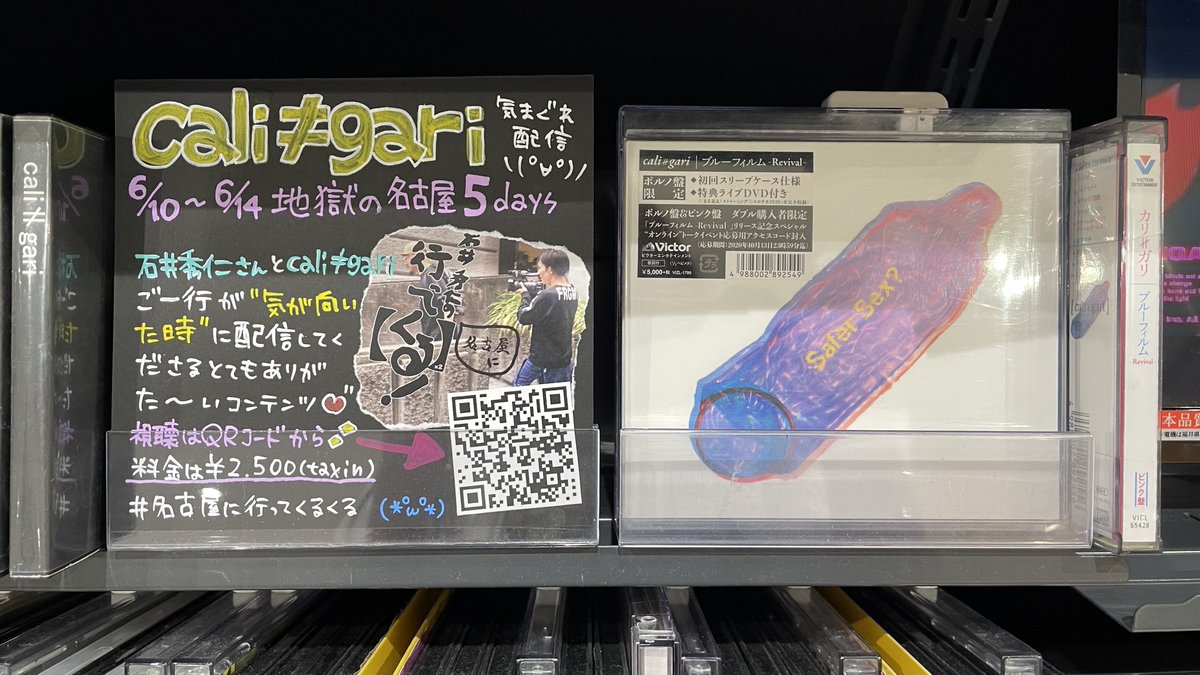 cali≠gari
cali≠gari
気まぐれ
配信
\\(°∀°)/
6/10～6/14 地獄の名古屋5days
石井秀仁さんとcali≠gari
ご一行が"気が向い
た時"に配信してく
ださるとてもありが
た～いコンテンツ
視聴はQRコードから
料金は¥2.500(tax in)
#名古屋に行ってくるくる (*°ω°*)
石井秀仁の
行ってくる!
名古屋
に
cali≠gari ブルーフィルム -Revival-
ポルノ盤
限定
◆初回スリーブケース仕様
◆特典ライブDVD付き
ポルノ盤&ピンク盤 ダブル購入者限定
「ブルーフィルム -Revival-」リリース記念スペシャル
"オンライン"トークイベント応募用アクセスコード封入
(応募期間:2020年10月13日23時59分迄)
Victor
ビクターエンタテインメント
¥5,000+税 VIZL-1799
4 988002 892549
Safer Sex?
VICTOR
ENTERTAINMENT
カリ≠ガリ
ブルーフィルム
-Revival-
ピンク盤
VICL
65428
本品質